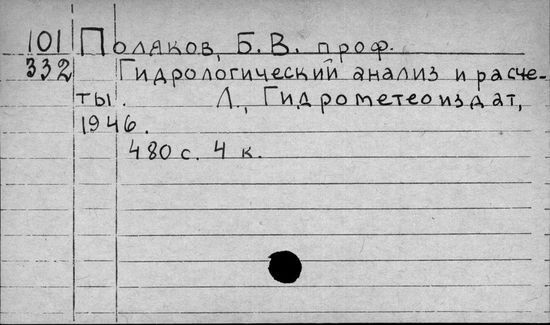 101 Поляков, Б. В. проф.
332 Гидрологический анализ и расче-
ты. Л., Гидрометеоиздат,
1946.
480 с. 4 к.